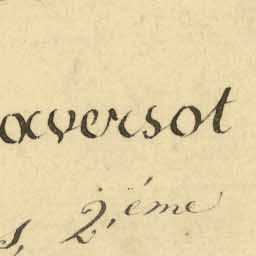 aversot
s, 2,éme